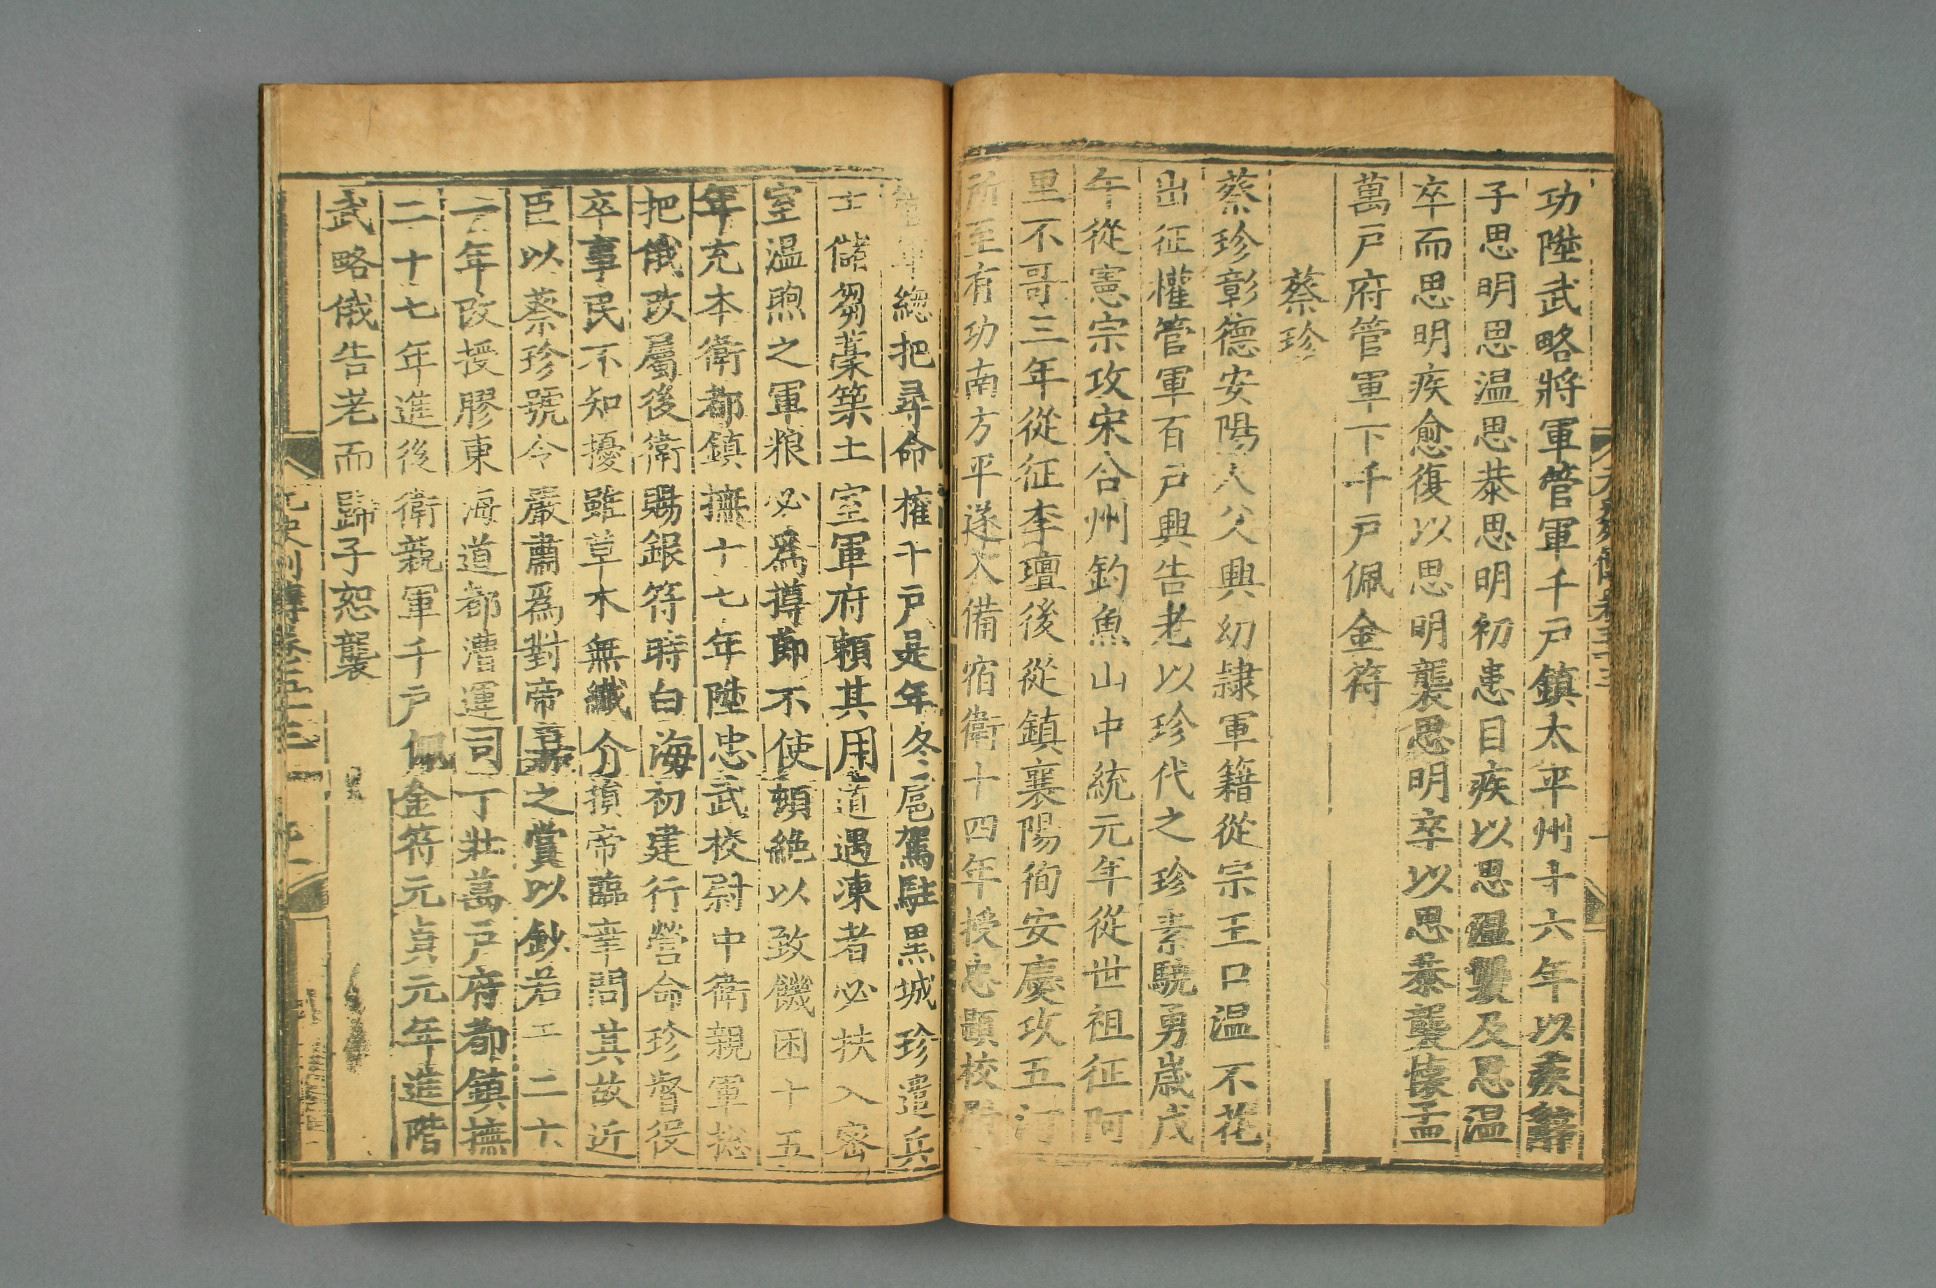 功陞武略將軍管軍千戶鎮太平州十六年以疾辭
子思明思温思恭思明初患目疾以思温襲及思温
卒而思明疾愈復以思明襲思明卒以思恭襲懷孟
萬戸府管軍下千戸佩金符
蔡珍
蔡珍彰德安陽人父興幼隷軍籍從宗王口温不花
出征權管軍百戸興告老以珍代之珍素驍勇歲戊
午從憲宗攻宋合州釣魚山中統元年從世祖征阿
里不哥三年從征李璮後從鎮襄陽徇安慶攻五河
所至有功南方平遂入備宿衛十四年授忠顯校尉
管軍總把尋命權千戸是年冬扈駕駐黑城珍遣兵
士儲芻藁築土室軍府頼其用道遇凍者必扶入密
室温煦之軍粮必爲撙節不使頓絶以致饑困十五
年充本衛都鎮撫十七年陞忠武校尉中衛親軍揔
把俄改屬後衛賜銀符時白海初建行營命珍督役
卒事民不知擾雖草木無纖介損帝臨幸問其故近
臣以蔡珍號令嚴肅爲對帝嘉之賞以鈔若干二十
一年改授膠東海道都漕運司丁壯萬戸府都鎮撫
二十七年進後衛親軍千戸佩金符元貞元年進階
武略俄告老而歸子恕襲
元史列傳卷五十三